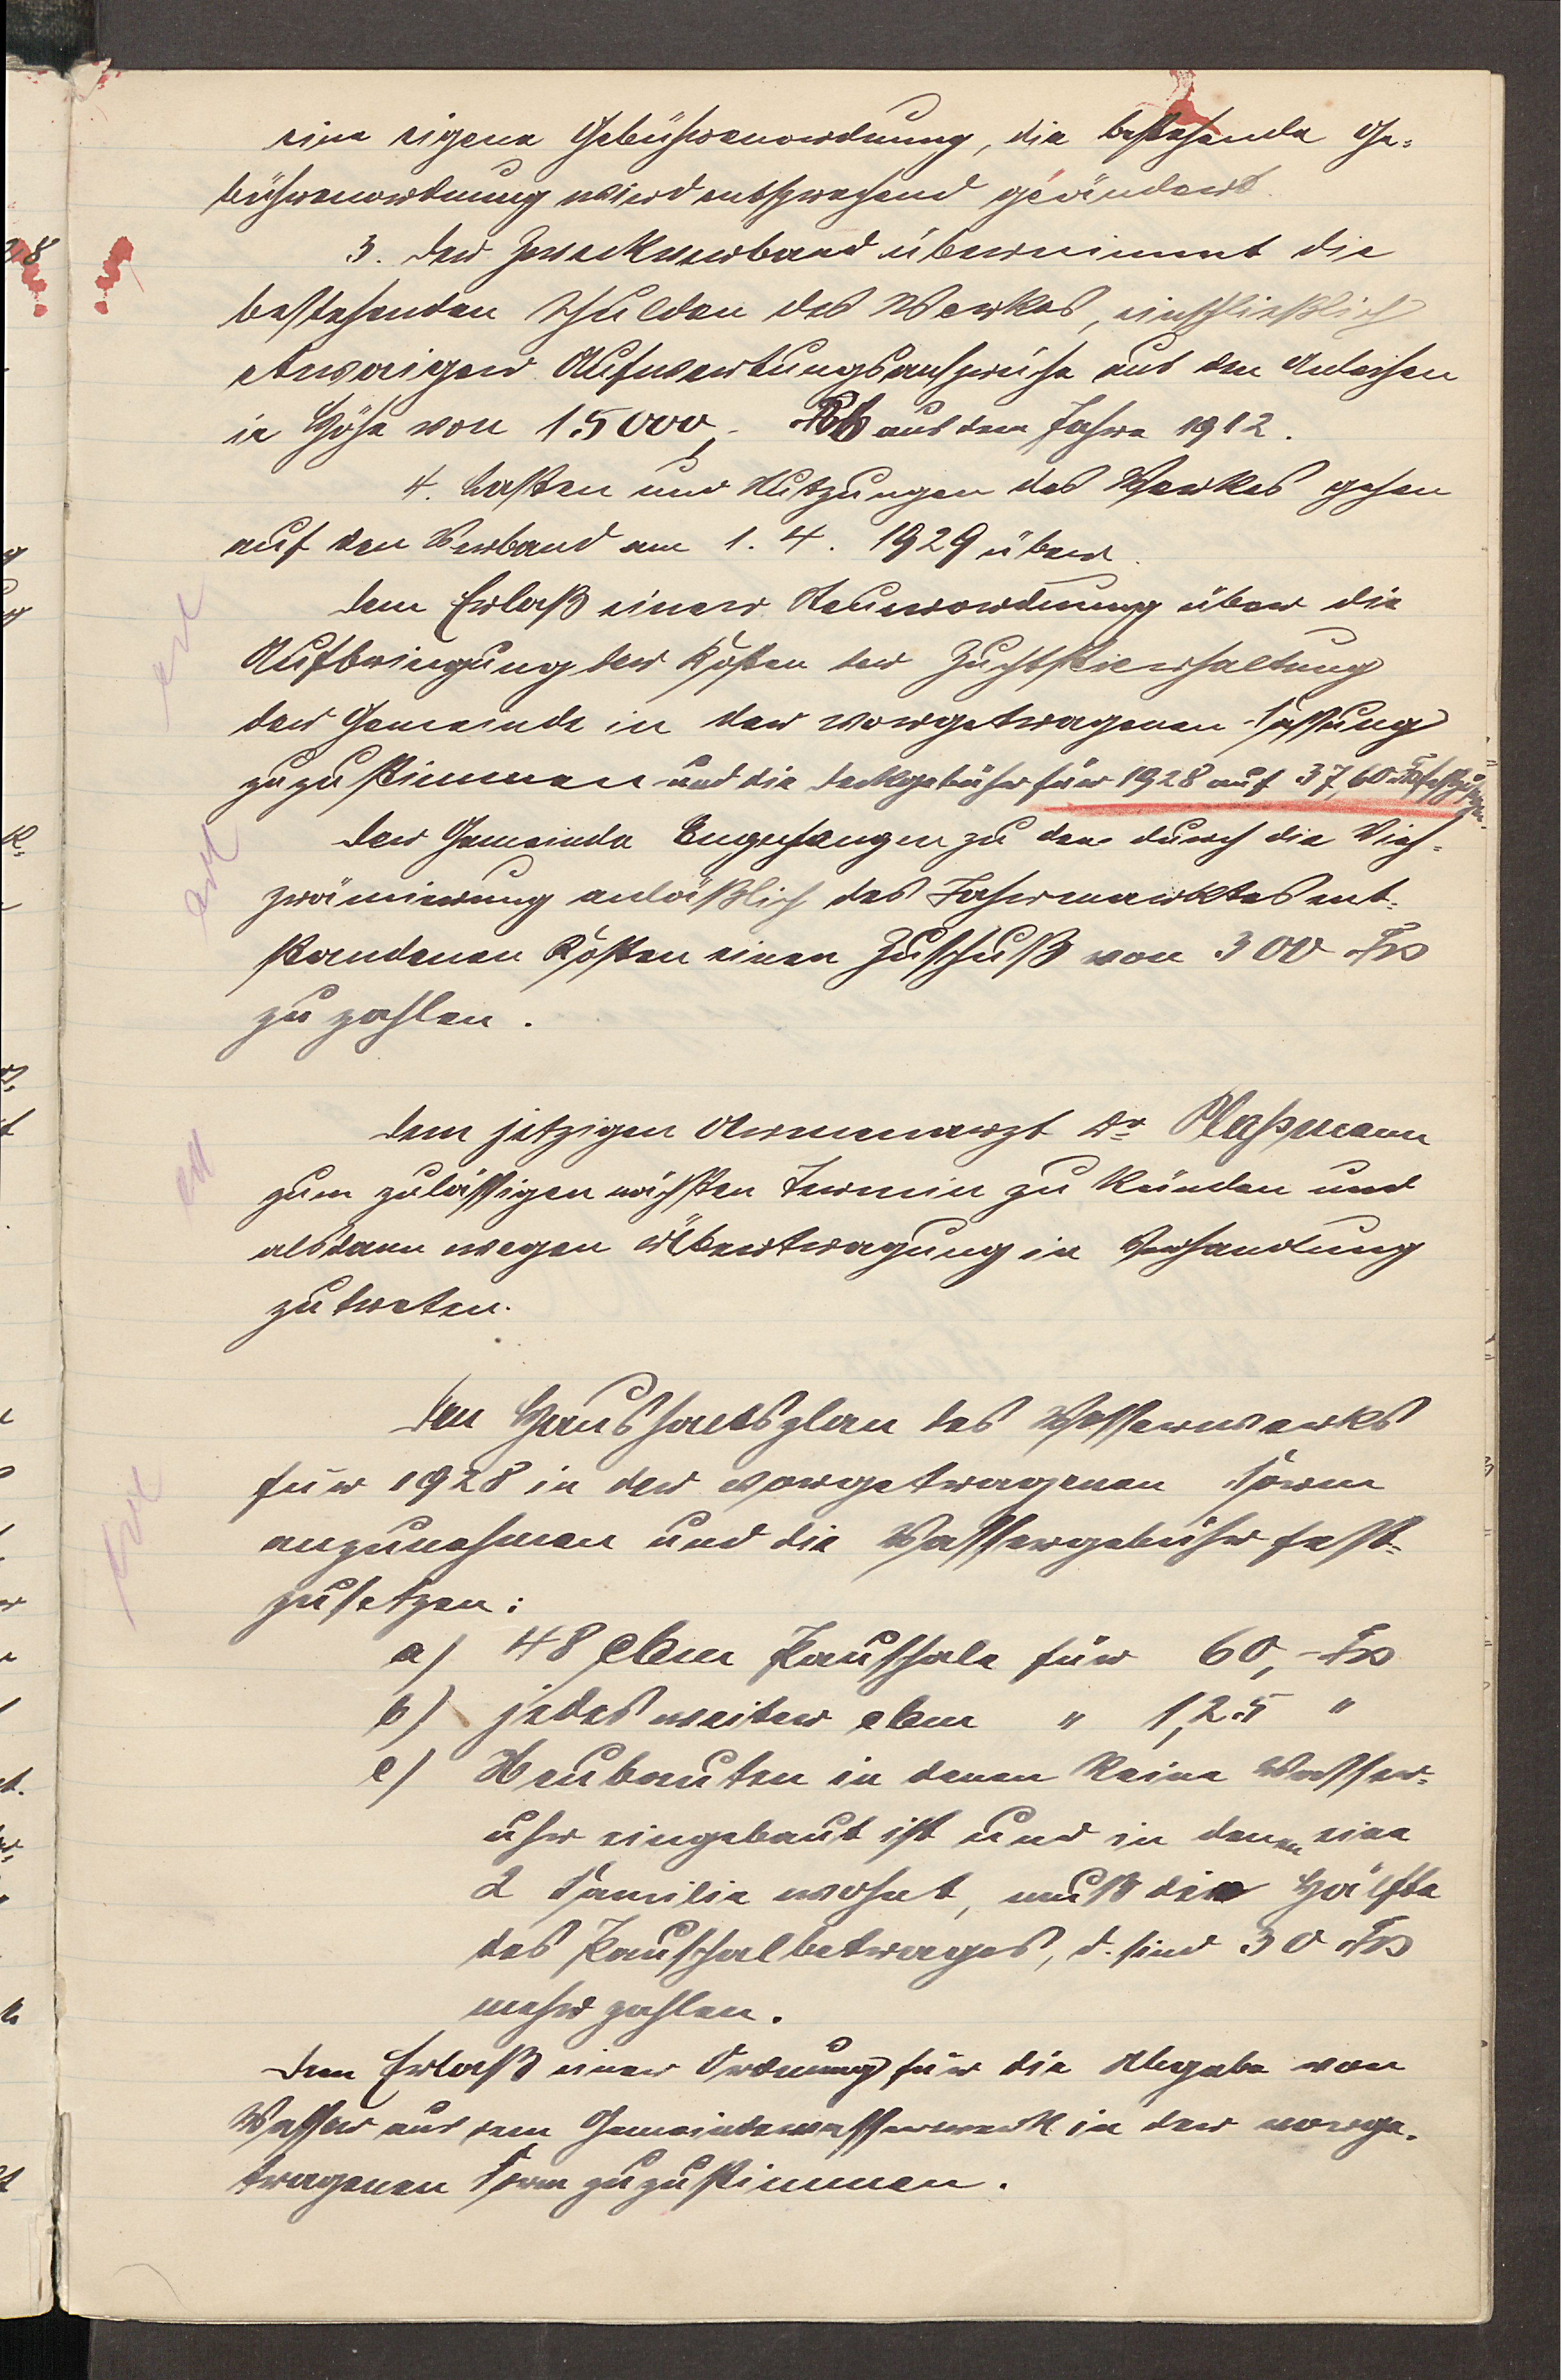 eine eigene Gebührenordnung, die bestehende Ge-
bührenordnung wird entsprechend geändert.
3. Der Zweckverband übernimmt die
bestehenden Schulden des Werkes, einschließlich
etwaiger Aufwertungsansprüche aus den Anleihen
in Höhe von 15000,- M aus dem Jahre 1912.
4. Lasten und Nutzungen des Werkes gehen
auf den Verband am 1. 4. 1929 über.
Dem Erlaß einer Steuerordnung über die
Aufbringung der Kosten der Zuchtstierhaltung
der Gemeinde in der vorgetragenen Fassung
zuzustimmen und die Deckgebühr für 1928 auf 37,60 Frs festzusetzen.
Der Gemeinde Bugehangen zu den durch die Vieh-
prämierung anläßlich des Jahrmarktes ent-
standenen Kosten einen Zuschuß von 300 Frs
zu zahlen.
Dem jetzigen Armenarzt Dr Plaßmann
zum zulässigen nächsten Termin zu künden und
alsdann wegen Übertragung in Verhandlung
zu treten.
Den Haushaltsplan des Wasserwerks
für 1928 in der vorgetragenen Form
anzunehmen und die Wassergebühr fest-
zusetzen:
a) 48 cbm Pauschale für 60,- Frs
b) jedes weiter cbm " 1,25 "
c) Neubauten in denen keine Wasser-
uhr eingebaut ist und in denen eine
2 Familie wohnt, muß die Hälfte
des Pauschalbetrages, d. sind 30 Frs
mehr zahlen.
Dem Erlaß einer Ordnung für die Abgabe von
Wasser aus dem Gemeindewasserwerk in der vorge-
tragenen Form zuzustimmen.